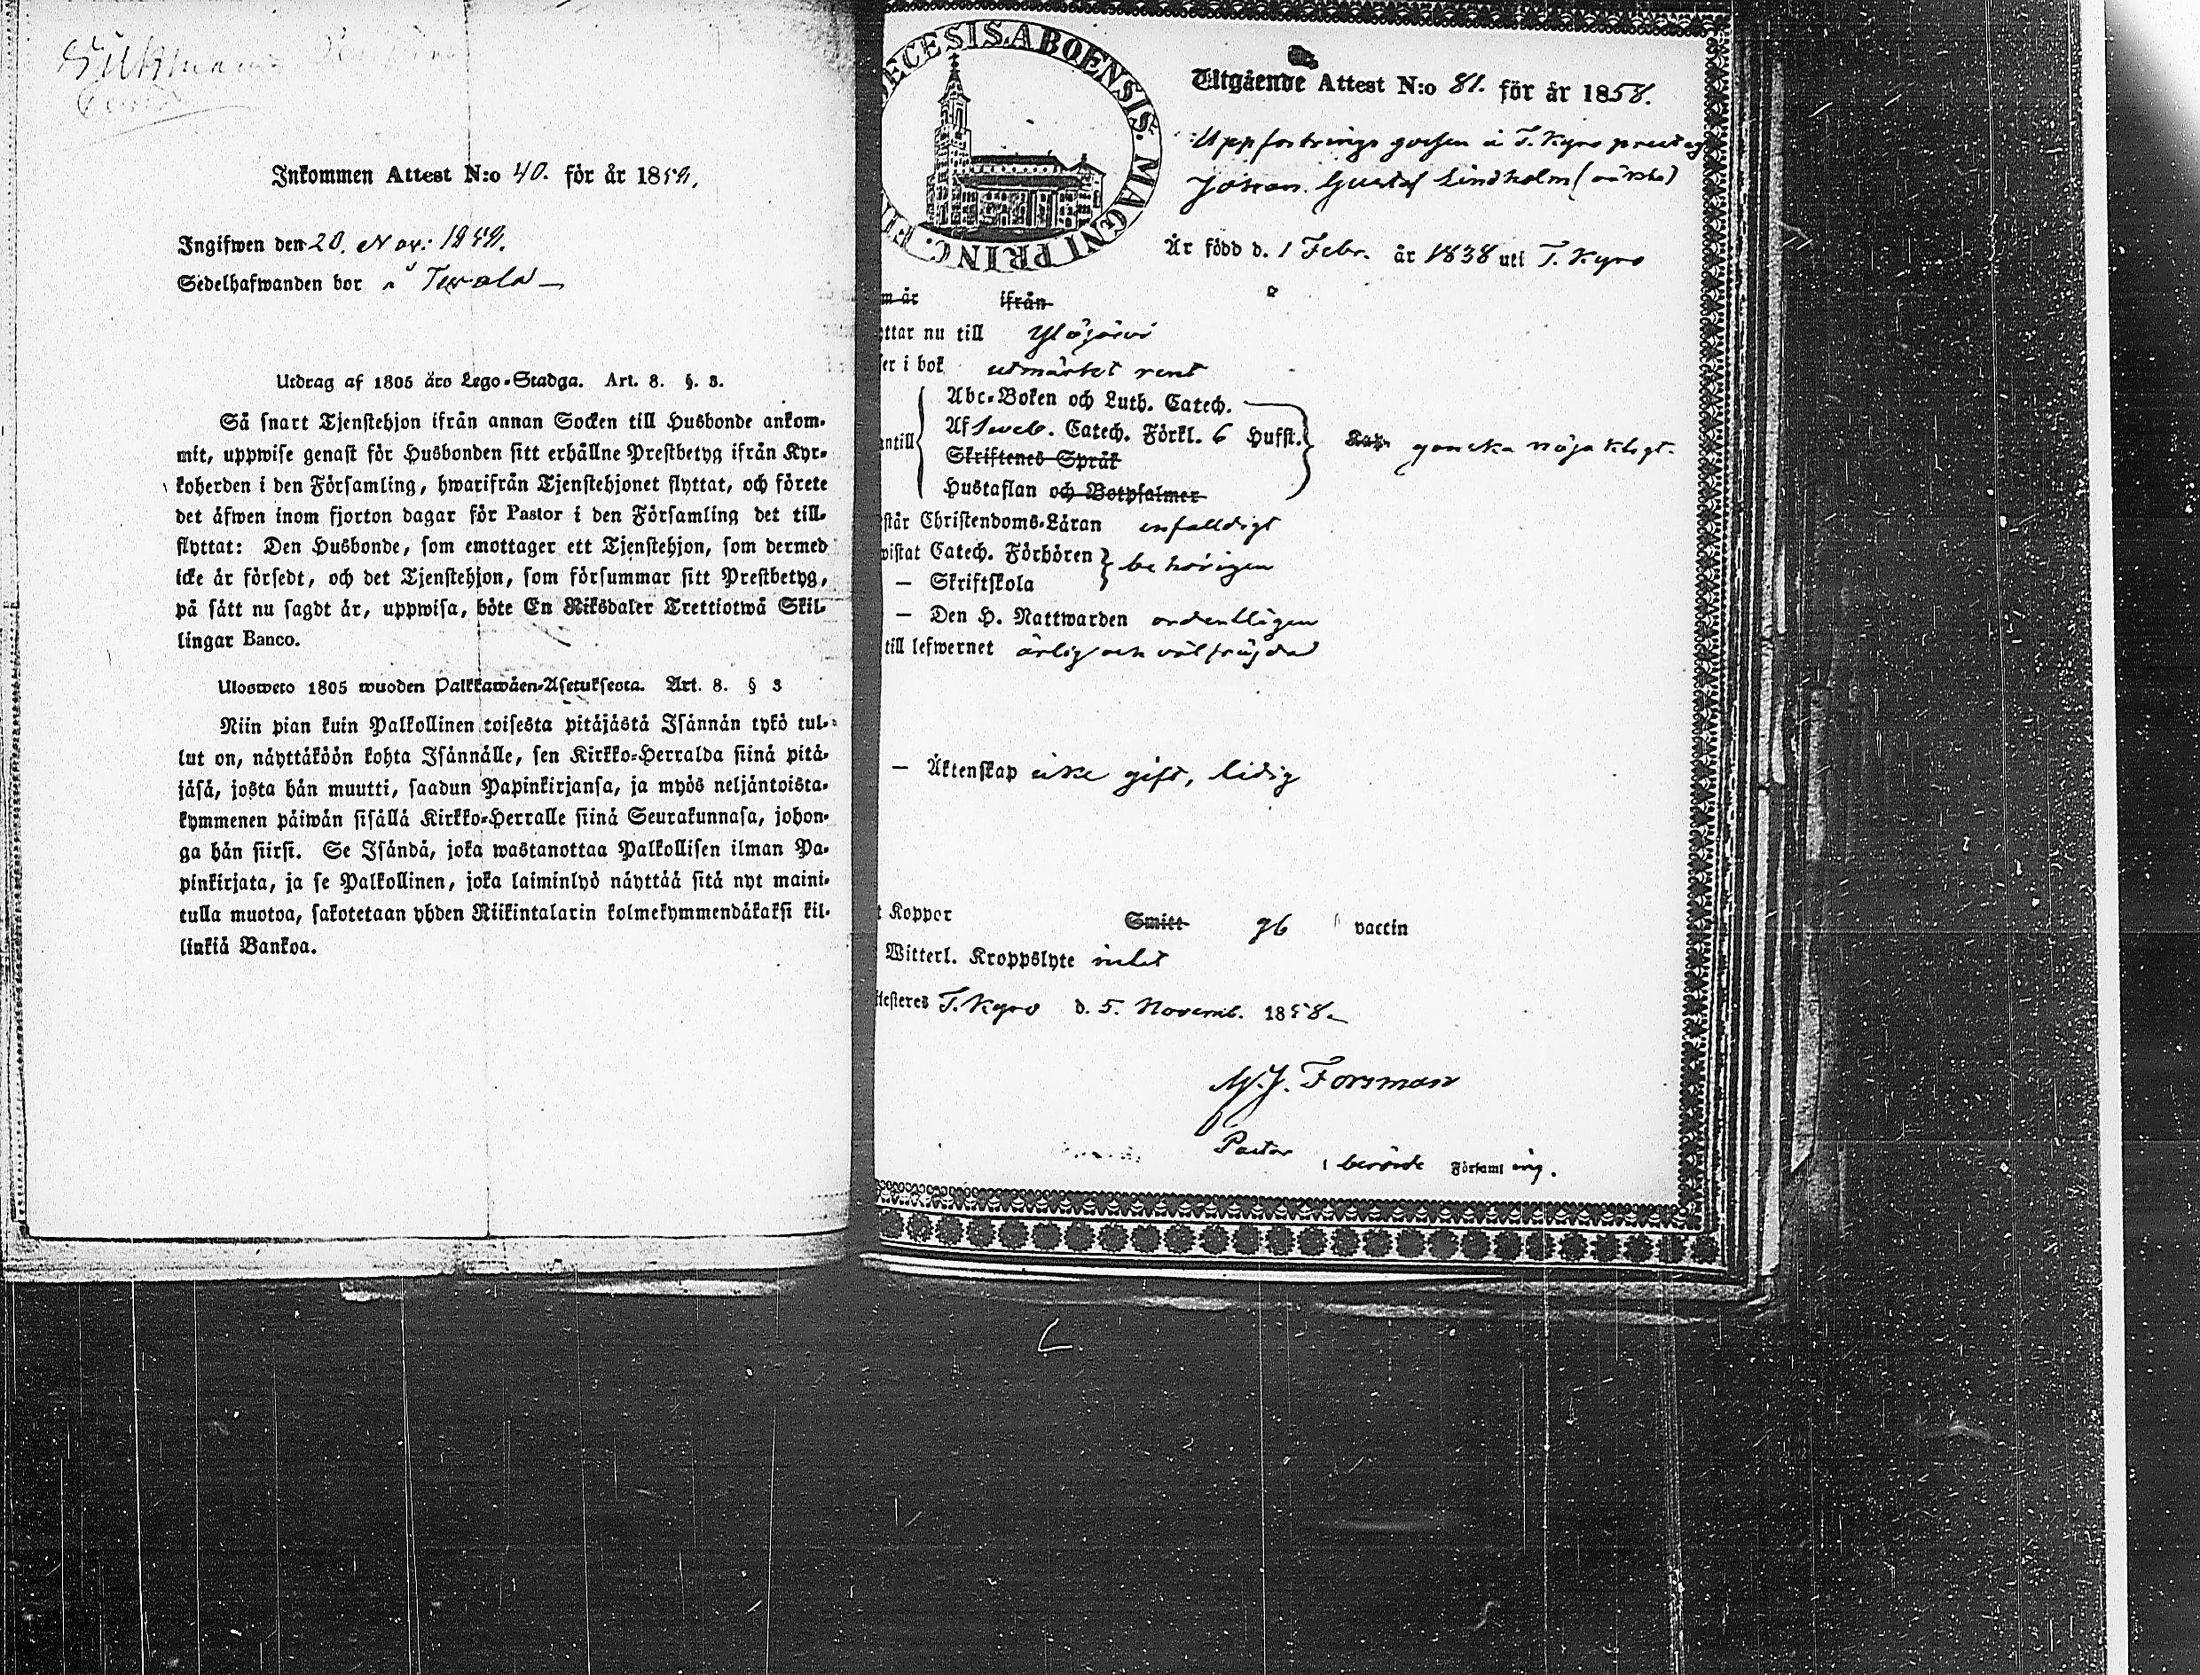 Inkommen Attest N:o 40. för år 1859.
Ingifwen den 20. Nov: 1859.
Sedelhafwanden bor å
Utdrag af 1805 års Lego-Stadga. Art. 8. §. 3.
Så snart Tjenstehjon ifrån annan Socken till Husbonde ankom-
mit, uppwise genast för Husbonden sitt erhållne Prestbetyg ifrån Kyr-
koherden i den Församling, hwarifrån Tjenstehjonet flyttat, och förete
det äfwen inom fjorton dagar för Pastor i den Församling det till-
flyttat: Den Husbonde, som emottager ett Tjenstehjon, som dermed
icke är försedt, och det Tjenstehjon, som försummar sitt Prestbetyg,
på sätt nu sagdt är, uppwisa, böte En Riksdaler Trettiotwå Skil-
lingar Banco.
Ulosweto 1805 wuoden Palkkawäen-Asetuksesta. Art. 8. § 3
Niin pian kuin Palkollinen toisesta pitäjästä Isännän tykö tul-
lut on, näyttäköön kohta Isännälle, sen Kirkko-Herralda siinä pitä-
jäsä, josta hän muutti, saadun Papinkirjansa, ja myös neljäntoista-
kymmenen päiwän sisällä Kirkko-Herralle siinä Seurakunnasa, johon-
ga hän siirsi. Se Isändä, joka wastanottaa Palkollisen ilman Pa-
pinkirjata, ja se Palkollinen, joka laiminlyö näyttää sitä nyt maini-
tulla muotoa, sakotetaan yhden Riikintalarin kolmekymmendäkaksi kil-
linkiä Bankoa.
ECESIS. ABOENSIS. MAGNI PRINC. FI
Utgående Attest N:o 81. för år 1858.
Uppfostrings gossen å T. Kyro prestg
Johan Gustaf Lindholm
Är född d. 1 Febr. år 1838 uti T. Kyro
m år ifrån
ttar nu till Ylöjärvi
er i bok utmärket rent
Abc-Boken och Luth. Catech.
antill Af Sweb. Catech. Förkl. 6 Hufst. ganska nöjaktigt.
Skriftenes Språk
Hustaflan och Botpsalmer
står Christendoms-Läran enfaldigt
wistat Catech. Förhören behörigen
— Skriftskola
— Den H. Nattwarden ordentligen
till lefwernet ärlig och välfrägdad
— Äktenskap icke gift, ledig
t Koppor Smitt gb vaccin
Witterl. Kroppslyte intet
testeres T. Kyro d. 5. Novemb. 1858.
Forsman
Pastor i berörde Församling.